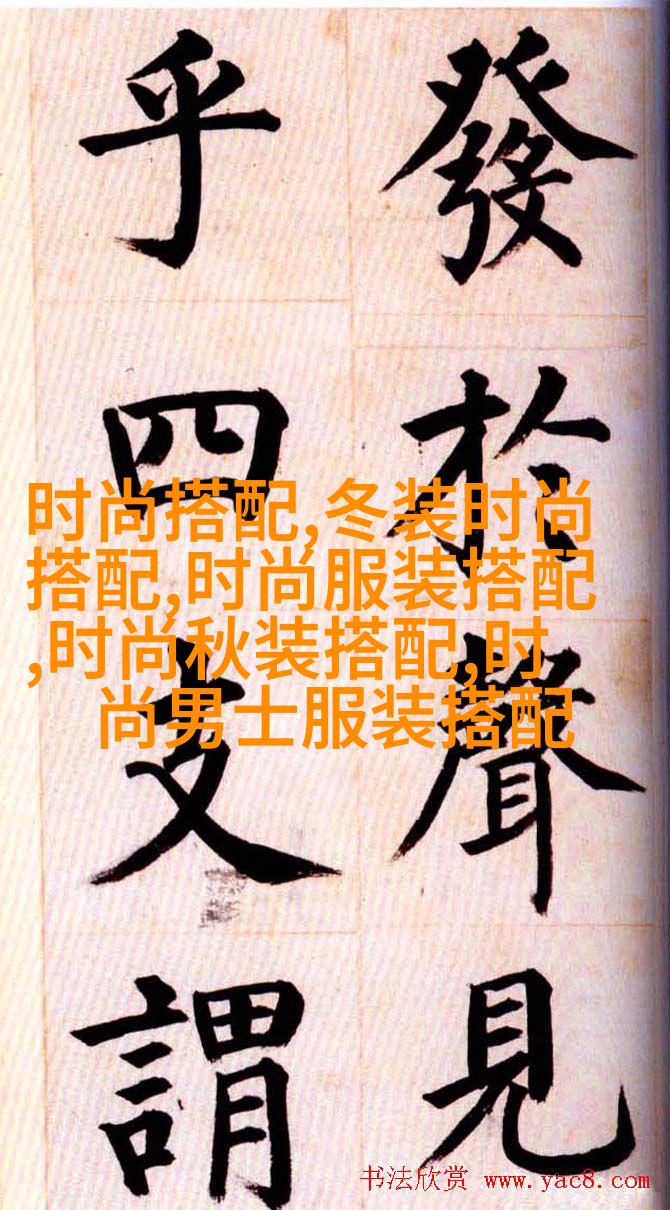 發於聲見
乎四支謂
时尚搭配,冬装时尚
搭配,时尚服装搭配
,时尚秋装搭配,时
尚男士服装搭配
书法欣赏 www.yac8.com